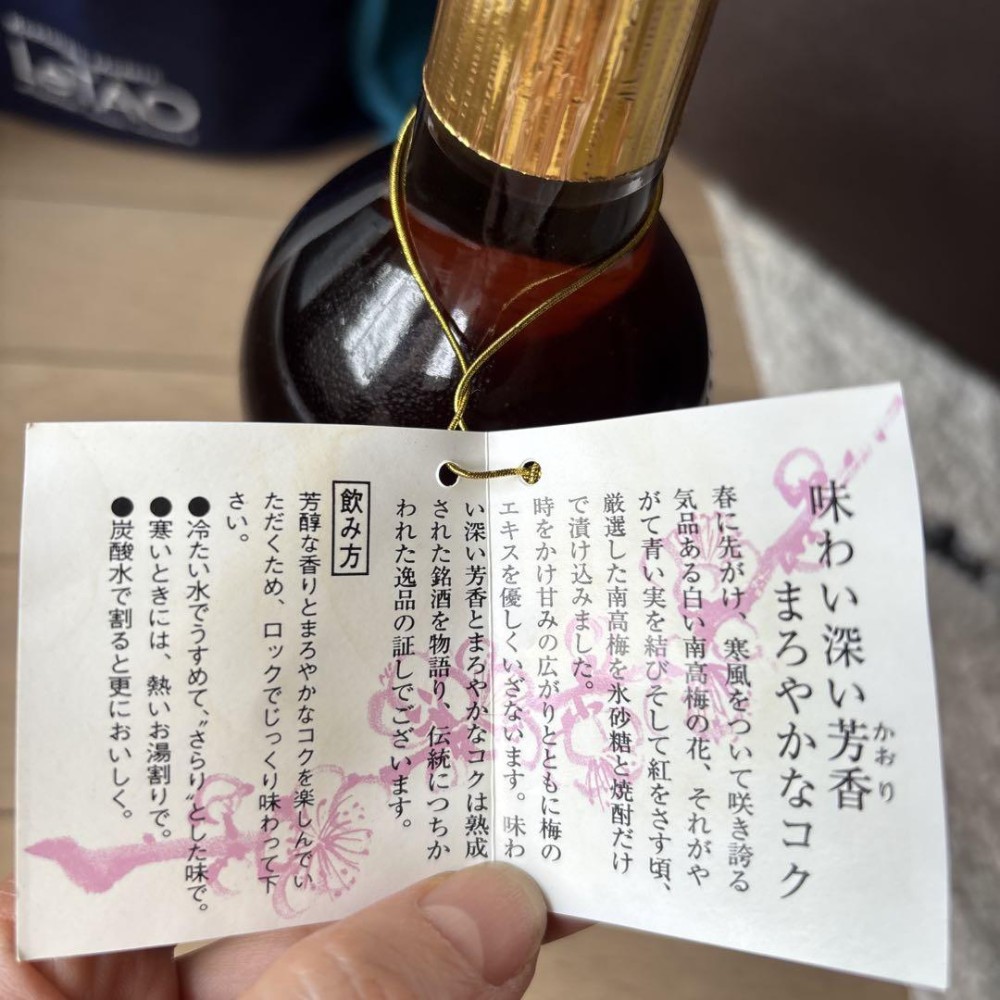 LeTAO
味わい深い芳香
かおり
まろやかなコク
春に先がけ、寒風をついて咲き誇る
気品ある白い南高梅の花、それがや
がて青い実を結びそして紅をさす頃、
厳選した南高梅を氷砂糖と焼酎だけ
で漬け込みました。
時をかけ甘みの広がりとともに梅の
エキスを優しくいざないます。味わ
い深い芳香とまろやかなコクは熟成
された銘酒を物語り、伝統につちか
われた逸品の証しでございます。
飲み方
芳醇な香りとまろやかなコクを楽しんでい
ただくため、ロックでじっくり味わって下
さい。
●冷たい水でうすめて、〝さらり〟とした味で。
●寒いときには、熱いお湯割りで。
●炭酸水で割ると更においしく。